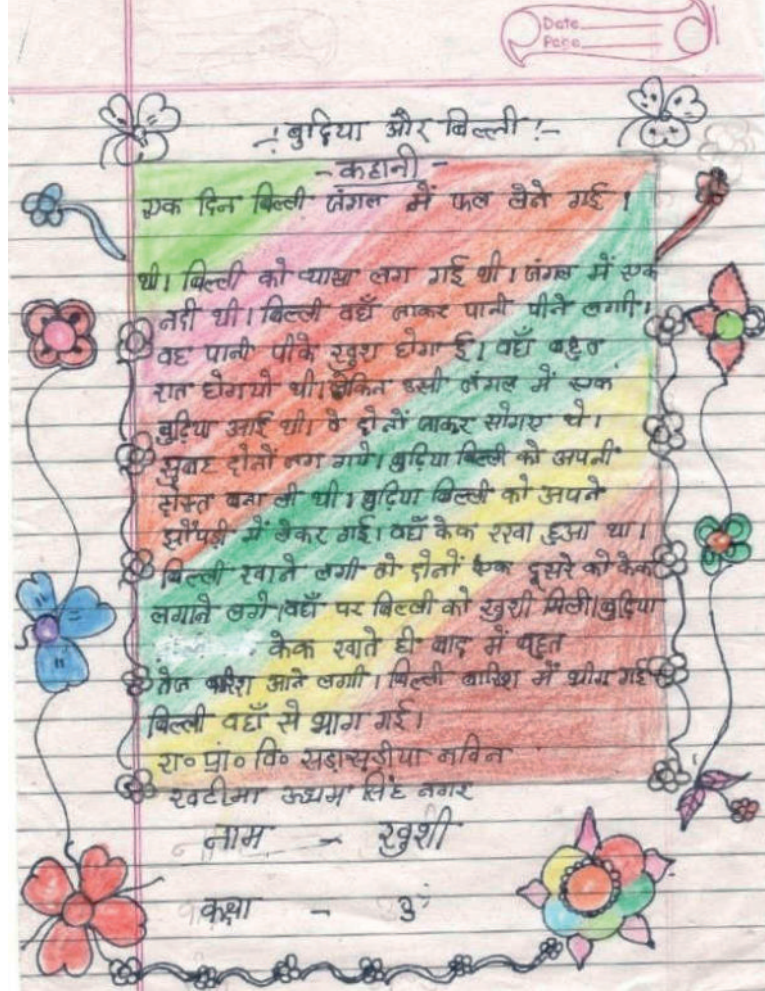 Date
Page
-! बुढ़िया और बिल्ली !-
- कहानी -
एक दिन बिल्ली जंगल में फल लेने गई ।
थी। बिल्ली को प्यासा लग गई थी। जंगल में एक
नदी थी। बिल्ली वहाँ जाकर पानी पीने लगी।
वह पानी पीके खुश होगई। वहाँ बहुत
रात होगयी थी। लेकिन इसी जंगल में एक
बुढ़िया आई थी। वे दोनों जाकर सोगए थे।
सुबह दोनों जग गये। बुढ़िया बिल्ली को अपनी
दोस्त बना ली थी। बुढ़िया बिल्ली को अपने
झोंपड़ी में लेकर गई। वहाँ केक रखा हुआ था।
बिल्ली खाने लगी वो दोनों एक दूसरे को केक
लगाने लगे। वहाँ पर बिल्ली को खुशी मिली। बुढ़िया
केक खाते ही बाद में बहुत
तेज बारिश आने लगी। बिल्ली बारिश में भीग गई
बिल्ली वहाँ से भाग गई।
रा॰ प्रा॰ वि॰ सड़ासड़ीया नविन
खटीमा ऊधम सिंह नगर
नाम - खुशी
कक्षा - 3